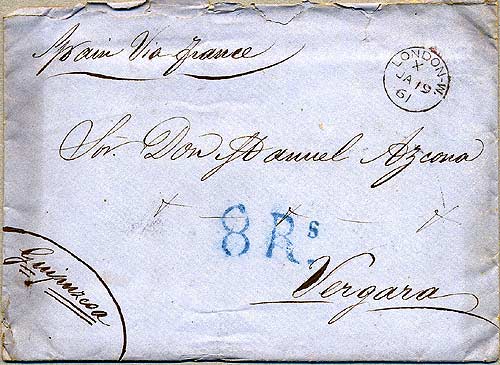 Spain Via France
LONDON-W.
X
JA 19
61
Sor. Don Manuel Azcona
8 Rs.
Guipuzcoa
Vergara